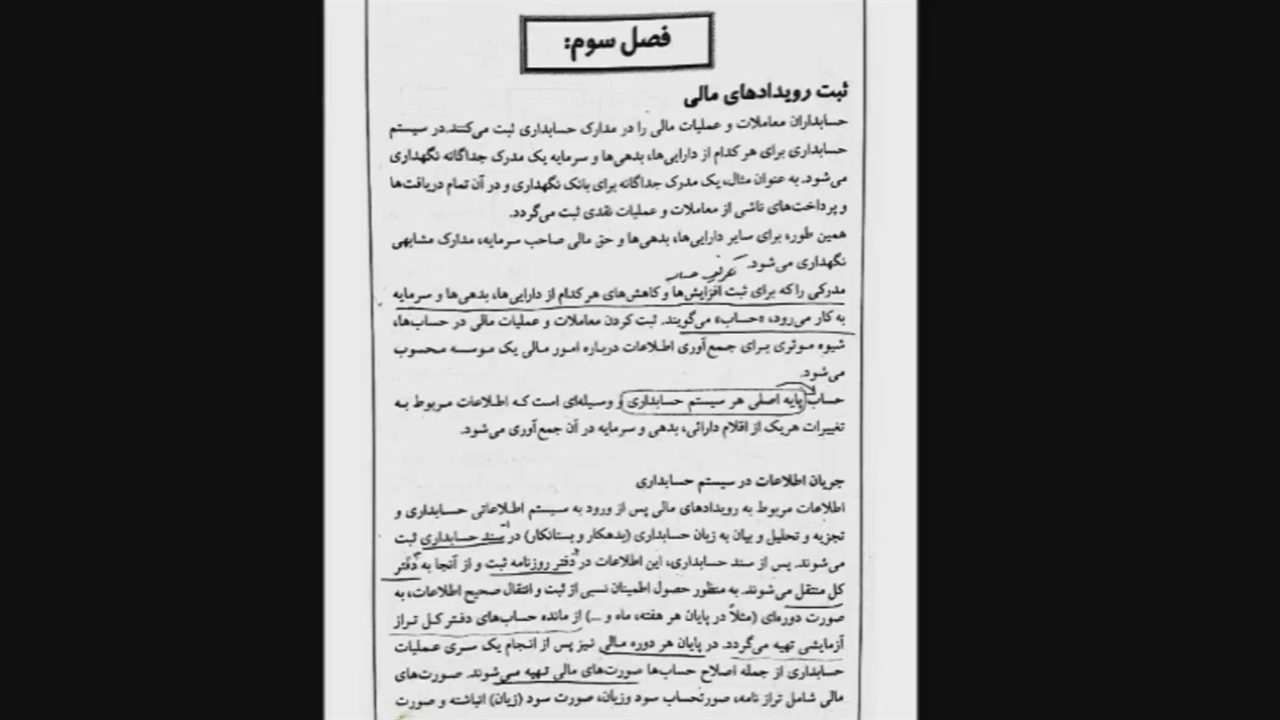 فصل سوم:
ثبت رویدادهای مالی
حسابداران معاملات و عملیات مالی را در مدارک حسابداری ثبت می‌کنند.در سیستم
حسابداری برای هر کدام از دارایی‌ها، بدهی‌ها و سرمایه یک مدرک جداگانه نگهداری
می‌شود. به عنوان مثال، یک مدرک جداگانه برای بانک نگهداری و در آن تمام دریافت‌ها
و پرداخت‌های ناشی از معاملات و عملیات نقدی ثبت می‌گردد.
همین طور، برای سایر دارایی‌ها، بدهی‌ها و حق مالی صاحب سرمایه، مدارک مشابهی
نگهداری می‌شود.
تعریف حساب
مدرکی را که برای ثبت افزایش‌ها و کاهش‌های هر کدام از دارایی‌ها، بدهی‌ها و سرمایه
به کار می‌رود، «حساب» می‌گویند. ثبت کردن معاملات و عملیات مالی در حساب‌ها،
شیوه موثری برای جمع‌آوری اطلاعات درباره امور مالی یک موسسه محسوب
می‌شود.
حساب پایه اصلی هر سیستم حسابداری و وسیله‌ای است که اطلاعات مربوط به
تغییرات هریک از اقلام دارائی، بدهی و سرمایه در آن جمع‌آوری می‌شود.
جریان اطلاعات در سیستم حسابداری
اطلاعات مربوط به رویدادهای مالی پس از ورود به سیستم اطلاعاتی حسابداری و
تجزیه و تحلیل و بیان به زبان حسابداری (بدهکار و بستانکار) در سند حسابداری ثبت
می‌شوند. پس از سند حسابداری، این اطلاعات در دفتر روزنامه ثبت و از آنجا به دفتر
کل منتقل می‌شوند. به منظور حصول اطمینان نسبی از ثبت و انتقال صحیح اطلاعات، به
صورت دوره‌ای (مثلاً در پایان هر هفته، ماه و ...) از مانده حساب‌های دفتر کل تراز
آزمایشی تهیه می‌گردد. در پایان هر دوره مالی نیز پس از انجام یک سری عملیات
حسابداری از جمله اصلاح حساب‌ها صورت‌های مالی تهیه می‌شوند. صورت‌های
مالی شامل تراز نامه، صورتحساب سود وزیان، صورت سود (زیان) انباشته و صورت